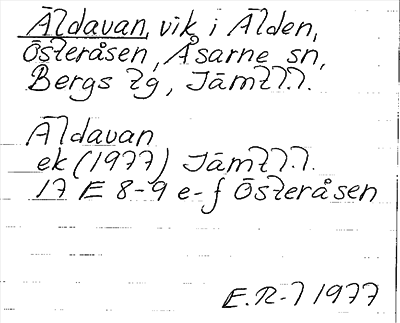 Äldavan, vik i Älden,
Österåsen, Åsarne sn,
Bergs tg, Jämtl.l.
Äldavan
ek (1977) Jämtl.l.
17 E 8-9 e-f Österåsen
E.R-l 1977